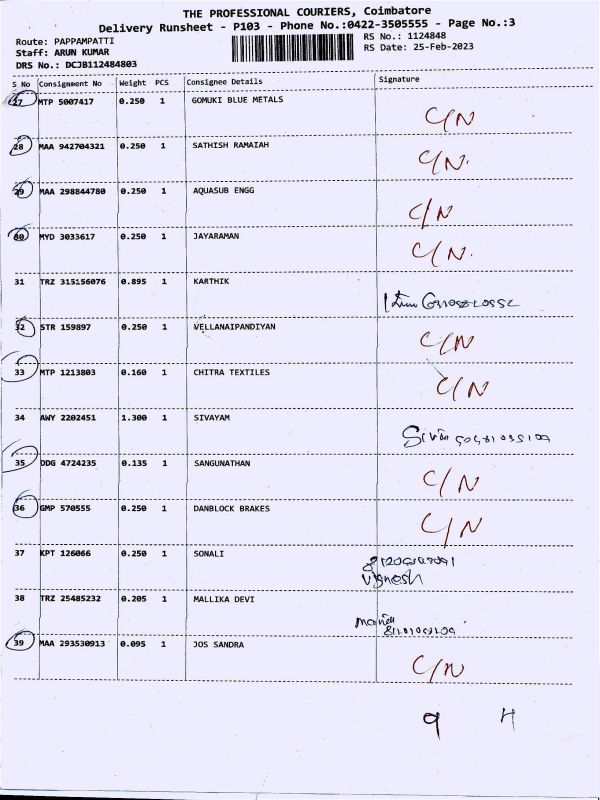 THE PROFESSIONAL COURIERS, Coimbatore
Delivery Runsheet - P103 - Phone No.:0422-3505555 - Page No.:3
Route: PAPPAMPATTI RS No.: 1124848
Staff: ARUN KUMAR RS Date: 25-Feb-2023
DRS No.: DCJB112484803
S No Consignment No Weight PCS Consignee Details Signature
27 MTP 5007417 0.250 1 GOMUKI BLUE METALS C/N
28 MAA 942704321 0.250 1 SATHISH RAMAIAH C/N.
29 MAA 298844780 0.250 1 AQUASUB ENGG C/N
30 MYD 3033617 0.250 1 JAYARAMAN C/N.
31 TRZ 315156076 0.895 1 KARTHIK
32 STR 159897 0.250 1 VELLANAIPANDIYAN C/N
33 MTP 1213803 0.160 1 CHITRA TEXTILES C/N
34 AWY 2202451 1.300 1 SIVAYAM
35 DDG 4724235 0.135 1 SANGUNATHAN C/N
36 GMP 570555 0.250 1 DANBLOCK BRAKES C/N
37 KPT 126066 0.250 1 SONALI
Vignesh
38 TRZ 25485232 0.205 1 MALLIKA DEVI
39 MAA 293530913 0.095 1 JOS SANDRA C/N
9 4